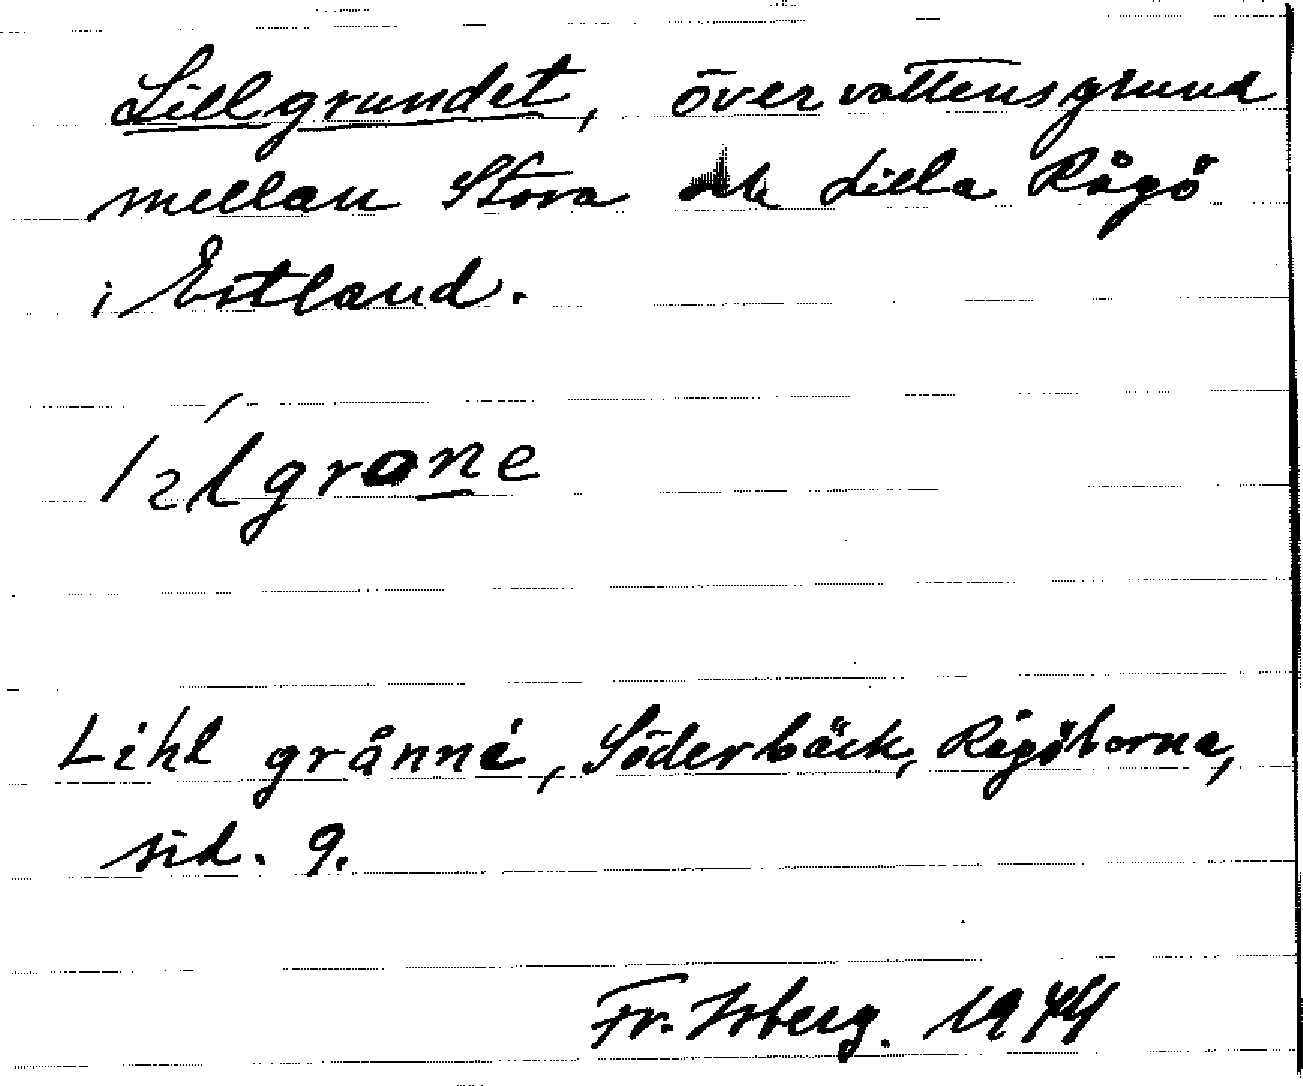 Lillgrundet, övervattensgrund
mellan Stora och Lilla Rågö
i Estland.
Lihl grånné, Söderbäck, Rågöborna,
sid. 9.
Fr. Isberg. 1944